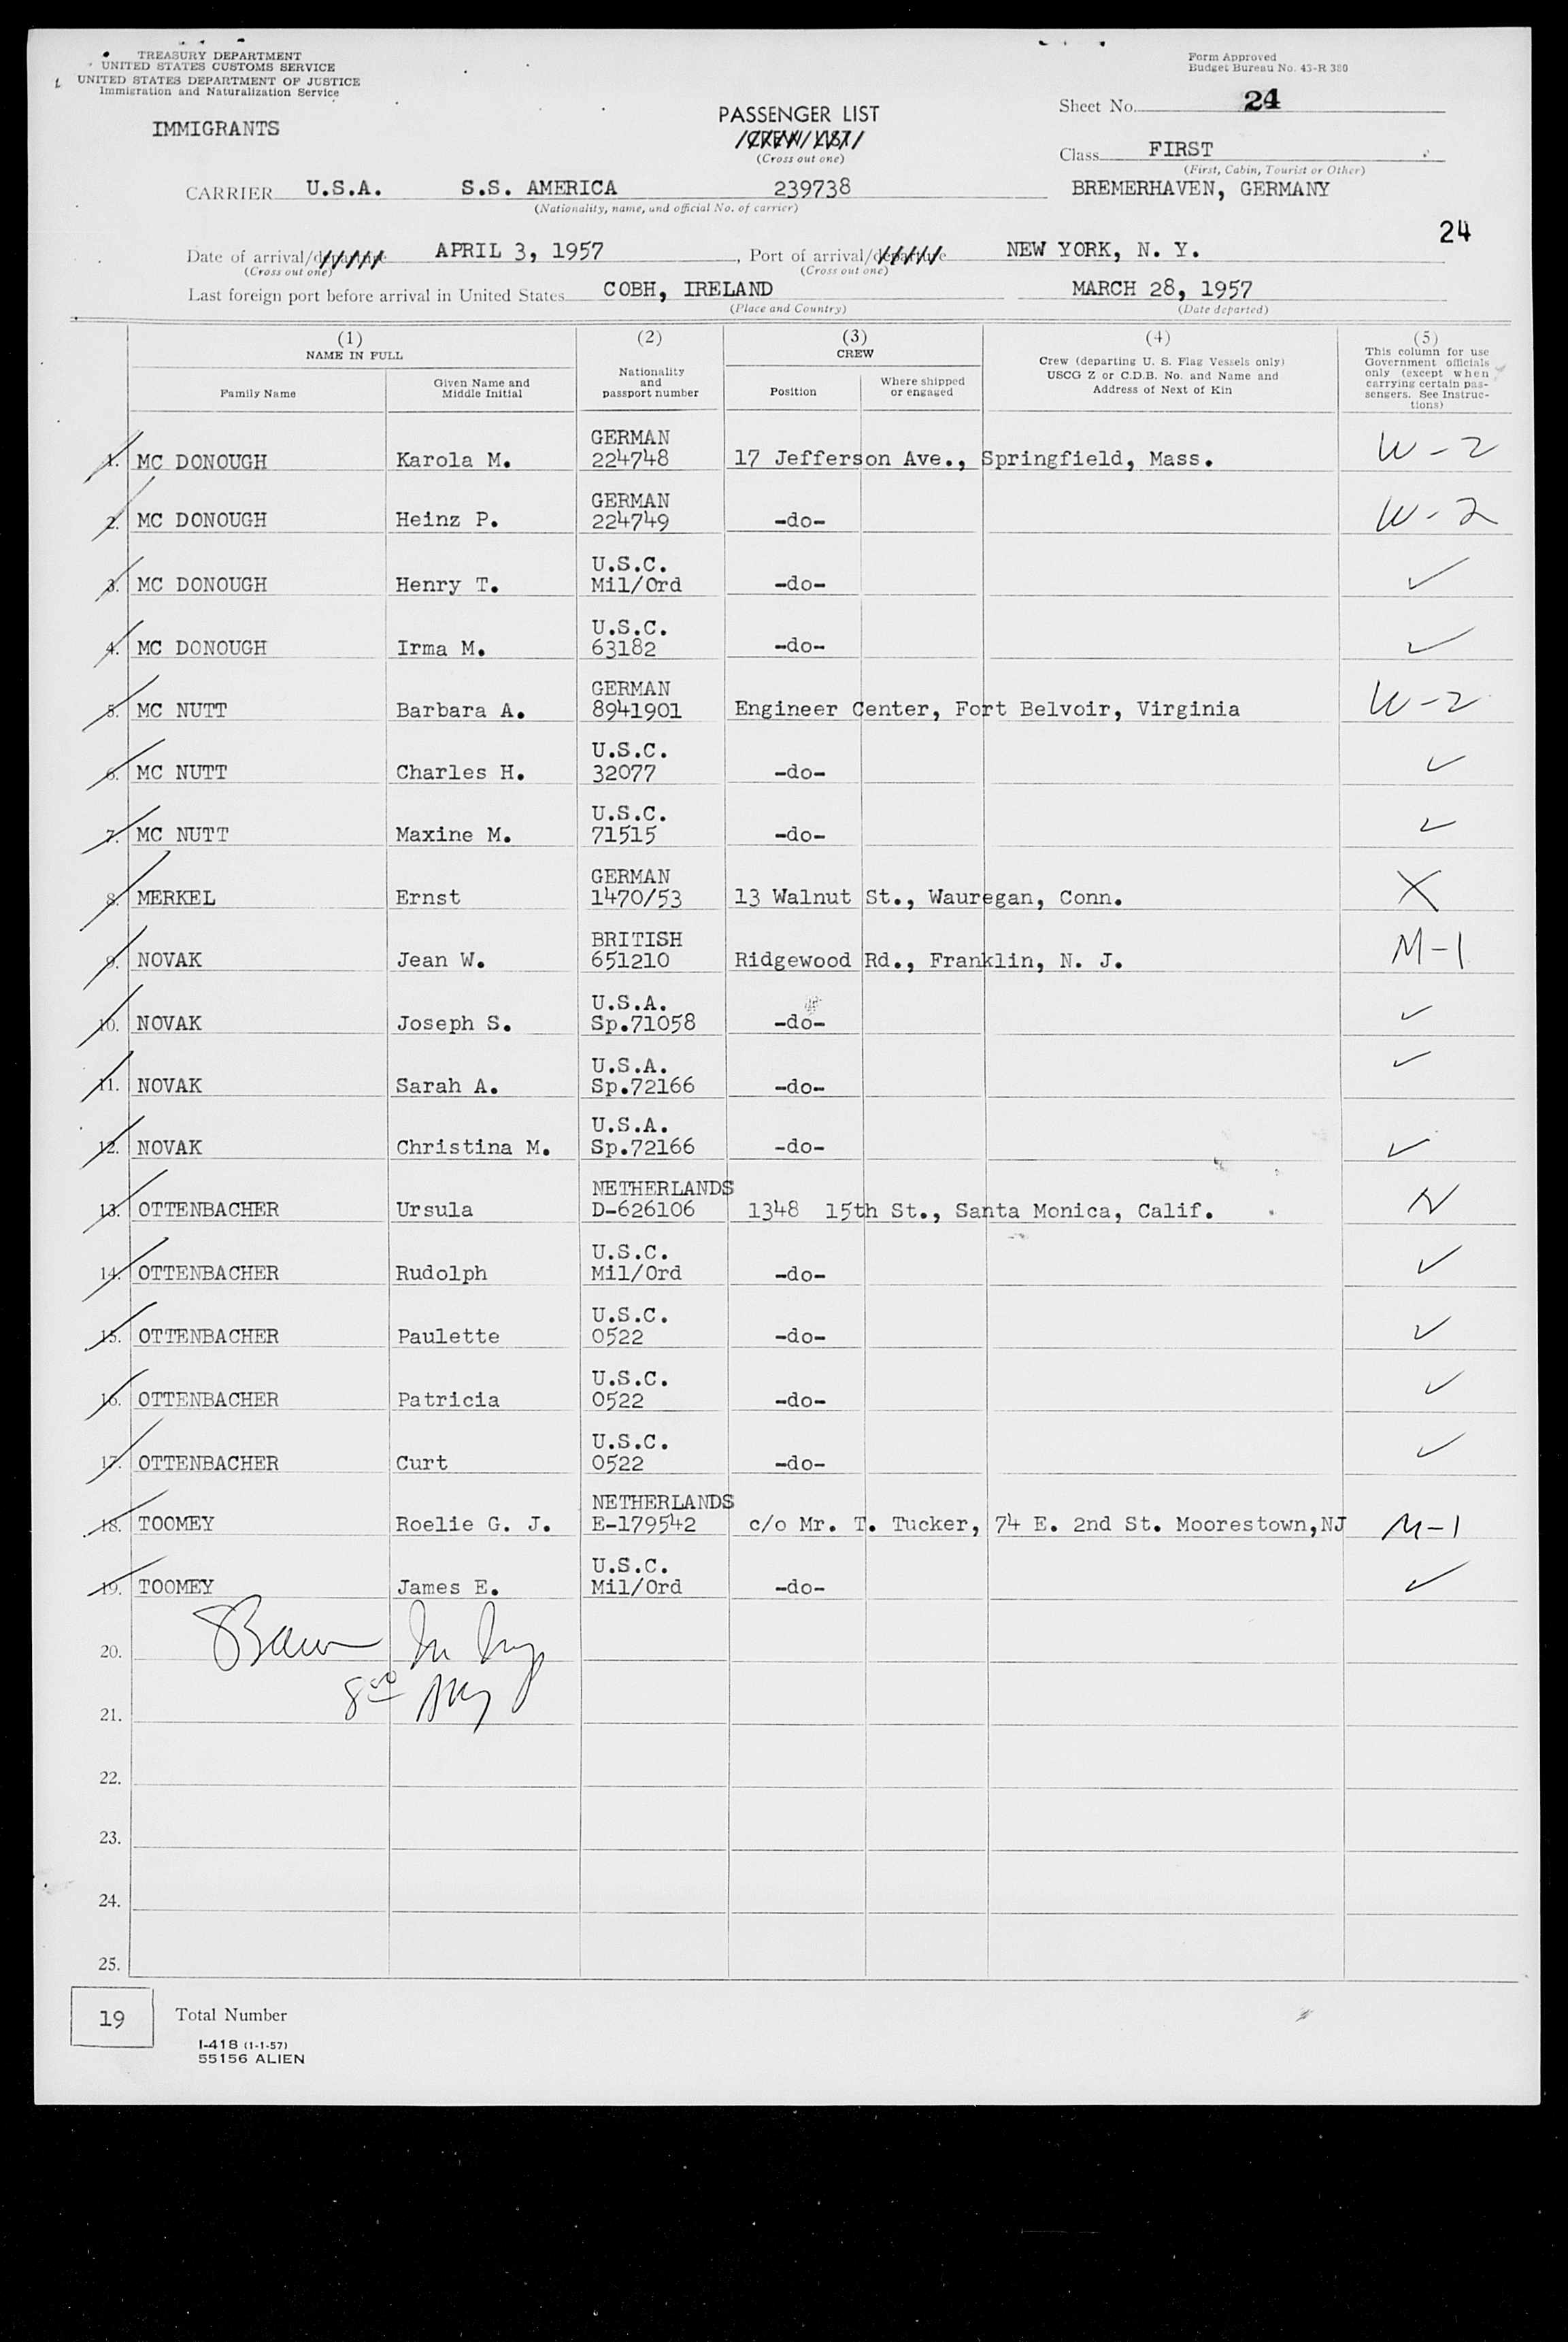 TREASURY DEPARTMENT
UNITED STATES CUSTOMS SERVICE
UNITED STATES DEPARTMENT OF JUSTICE
Immigration and Naturalization Service
Form Approved
Budget Bureau No. 43-R 380
IMMIGRANTS
PASSENGER LIST
Sheet No. 24
/CREW/LIST/
(Cross out one)
Class FIRST
(First, Cabin, Tourist or Other)
CARRIER U.S.A. S.S. AMERICA 239738 BREMERHAVEN, GERMANY
(Nationality, name, and official No. of carrier)
24
Date of arrival/departure APRIL 3, 1957, Port of arrival/departure NEW YORK, N. Y.
(Cross out one) (Cross out one)
Last foreign port before arrival in United States COBH, IRELAND MARCH 28, 1957
(Place and Country) (Date departed)
(1) NAME IN FULL
Family Name
Given Name and Middle Initial
(2)
Nationality and passport number
(3) CREW
Position
Where shipped or engaged
(4)
Crew (departing U. S. Flag Vessels only)
USCG Z or C.D.B. No. and Name and
Address of Next of Kin
(5)
This column for use
Government officials
only (except when
carrying certain pas-
sengers. See Instruc-
tions)
1. MC DONOUGH Karola M. GERMAN 224748 17 Jefferson Ave., Springfield, Mass. W-2
2. MC DONOUGH Heinz P. GERMAN 224749 -do- W-2
3. MC DONOUGH Henry T. U.S.C. Mil/Ord -do- ✓
4. MC DONOUGH Irma M. U.S.C. 63182 -do- ✓
5. MC NUTT Barbara A. GERMAN 8941901 Engineer Center, Fort Belvoir, Virginia W-2
6. MC NUTT Charles H. U.S.C. 32077 -do- ✓
7. MC NUTT Maxine M. U.S.C. 71515 -do- ✓
8. MERKEL Ernst GERMAN 1470/53 13 Walnut St., Wauregan, Conn. X
9. NOVAK Jean W. BRITISH 651210 Ridgewood Rd., Franklin, N. J. M-1
10. NOVAK Joseph S. U.S.A. Sp.71058 -do- ✓
11. NOVAK Sarah A. U.S.A. Sp.72166 -do- ✓
12. NOVAK Christina M. U.S.A. Sp.72166 -do- ✓
13. OTTENBACHER Ursula NETHERLANDS D-626106 1348 15th St., Santa Monica, Calif. N
14. OTTENBACHER Rudolph U.S.C. Mil/Ord -do- ✓
15. OTTENBACHER Paulette U.S.C. 0522 -do- ✓
16. OTTENBACHER Patricia U.S.C. 0522 -do- ✓
17. OTTENBACHER Curt U.S.C. 0522 -do- ✓
18. TOOMEY Roelie G. J. NETHERLANDS E-179542 c/o Mr. T. Tucker, 74 E. 2nd St. Moorestown,NJ M-1
19. TOOMEY James E. U.S.C. Mil/Ord -do- ✓
20.
21.
22.
23.
24.
25.
19 Total Number
I-418 (1-1-57)
55156 ALIEN